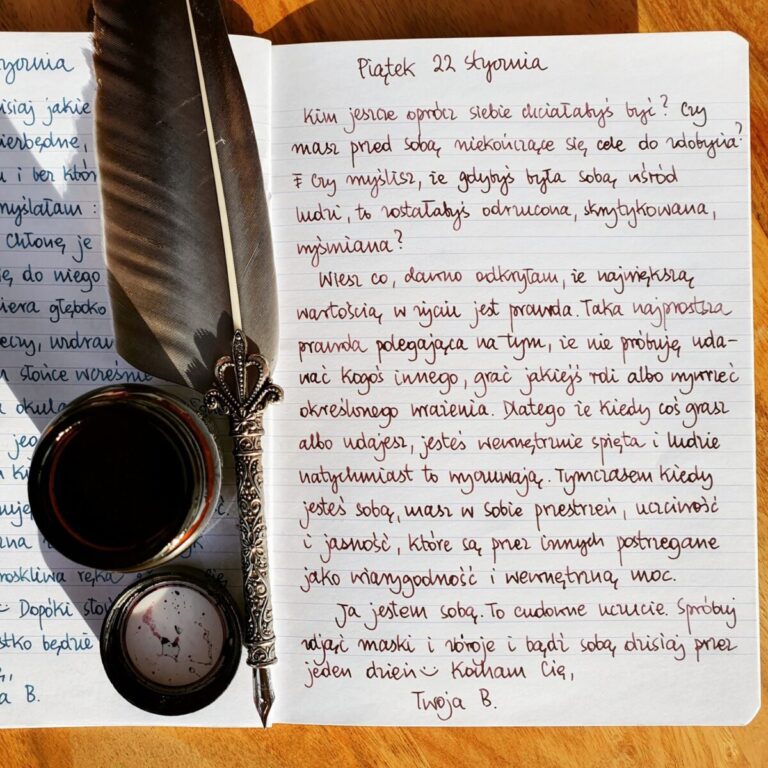 isiaj jakie
myślałam :
Chłonę je
ię do niego
iera głęboko
słońce wcześnie
Dopóki
stko będzie
a B.
Piątek 22 stycznia
Kim jeszcze oprócz siebie chciałabyś być? Czy
masz przed sobą niekończące się cele do zdobycia?
Czy myślisz, że gdybyś była sobą wśród
ludzi, to zostałabyś odrzucona, skrytykowana,
wyśmiana?
Wiesz co, dawno odkryłam, że największą
wartością w życiu jest prawda. Taka najprostsza
prawda polegająca na tym, że nie próbuję uda-
wać kogoś innego, grać jakiejś roli albo wywrzeć
określonego wrażenia. Dlatego że kiedy coś grasz
albo udajesz, jesteś wewnętrznie spięta i ludzie
natychmiast to wyczuwają. Tymczasem kiedy
jesteś sobą, masz w sobie przestrzeń, uczciwość
i jasność, które są przez innych postrzegane
jako wiarygodność i wewnętrzną moc.
Ja jestem sobą. To cudowne uczucie. Spróbuj
zdjąć maski i zbroje i bądź sobą dzisiaj przez
jeden dzień Kocham Cię,
Twoja B.